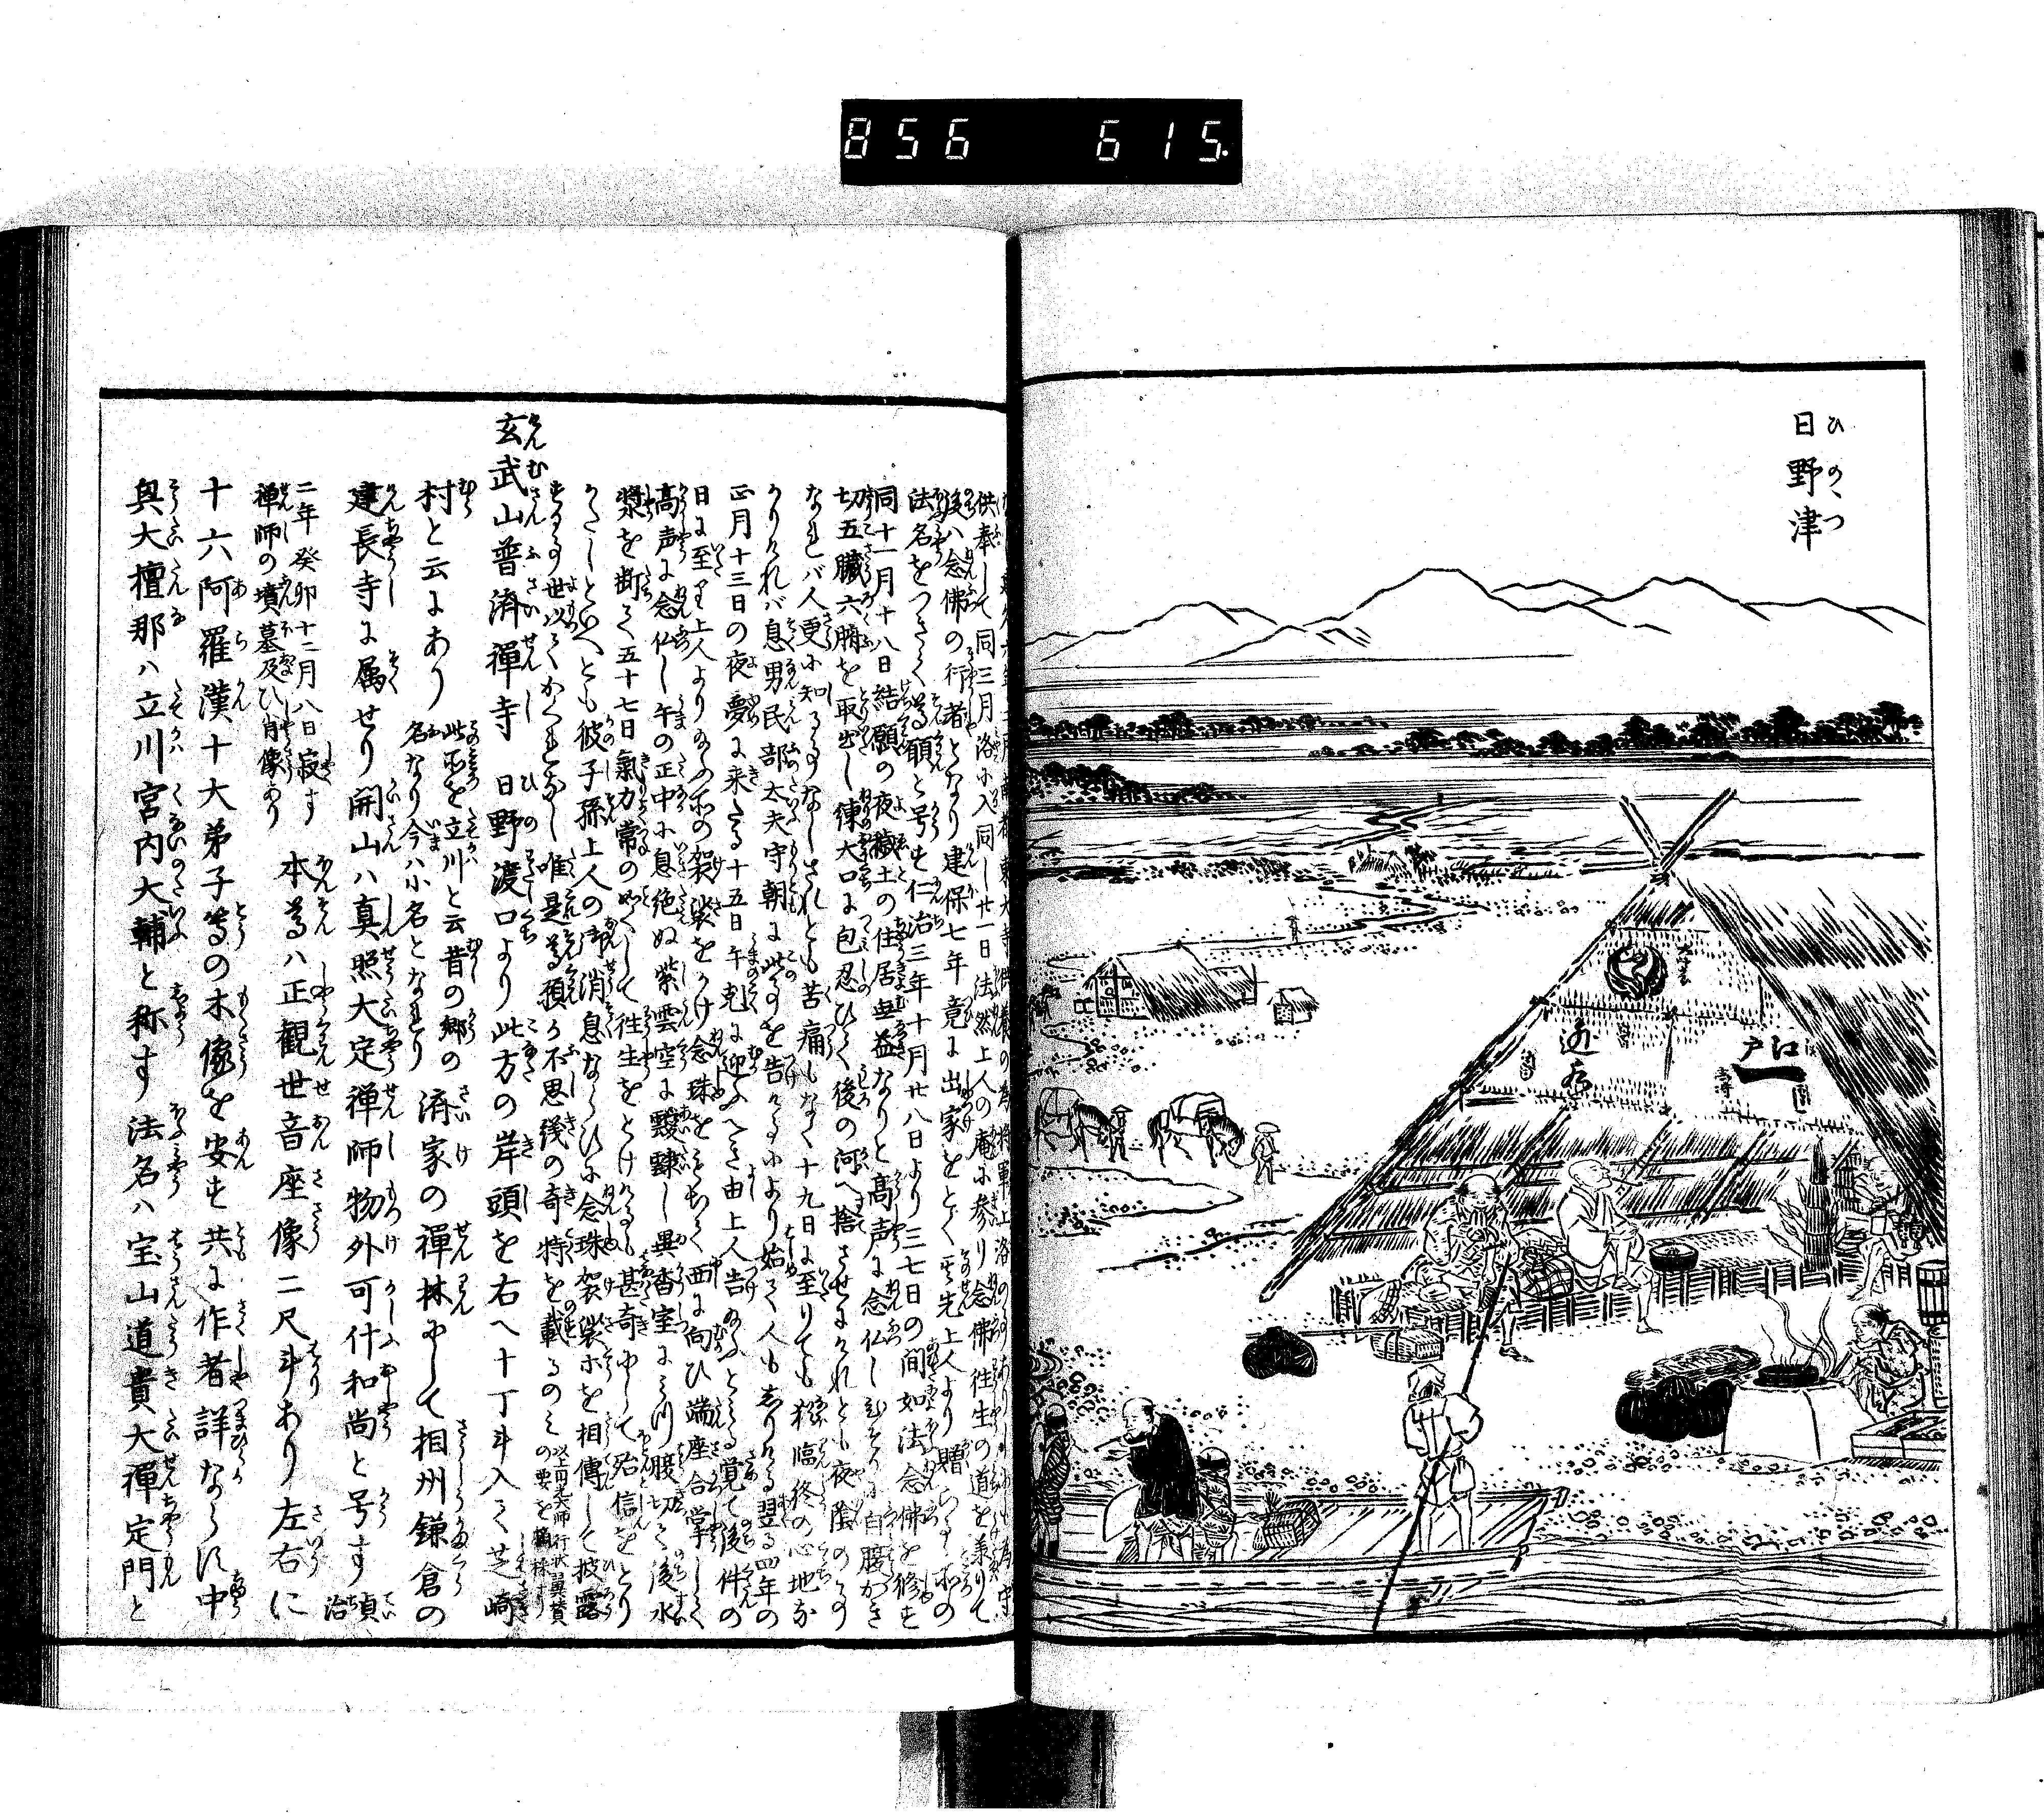 856 615.
日野津
ひのゝつ
江戸
供奉して同三月洛に入同し廿一日法然上人の庵に参り念佛往生の道を承りて
後ハ念佛の行者となり建保七年竟に出家をとく其先上人より贈らるゝ所の
法名をつきて尊願と号す仁治三年十月廿八日より三七日の間如法念佛を修す
同十一月十八日結願の夜穢土の住居無益なりと高声に念仏し
切五臓六腑を取出し練大口に包忍ひて後の河へ捨させにけれとも夜陰の
なれバ人更に知る事なしされとも苦痛もなく十九日に至りても猶臨終の心地な
かりけれバ息男民部大夫守朝に此事を告けるにより始て人もしりける翌る四年の
正月十三日の夜夢に来たる十五日午剋に迎ふへき由上人告給ふとみる覚て後件の
日に至り上人より給ふ所の袈裟をかけ念珠をもちて西に向ひ端座合掌して
高声に念仏し午の正中に息絶ぬ紫雲空に靉靆し異香室にみつ腹切て後水
漿を断て五十七日氣力常の如くして往生をとける甚奇にして殆信をとり
かたしといへとも彼子孫上人の御消息ならひに念珠袈裟等を相傳して披露
する事世以てかくれなし唯是尊願か不思議の奇特を載るのミ
玄武山普濟禪寺 日野渡口より此方の岸頭を右へ十丁斗入て芝崎
村と云にあり 此所を立川と云昔の郷の名なり今ハ小名となれり 濟家の禪林にして相州鎌倉の
建長寺に属せり開山ハ真照大定禅師物外可什和尚と号す 貞治
二年癸卯十二月八日寂す禅師の墳墓及ひ肖像あり 本尊ハ正観世音座像二尺斗あり左右に
十六阿羅漢十大弟子等の木像を安す共に作者詳ならす中
興大檀那ハ立川宮内大輔と称す法名ハ宝山道貴大禅定門と